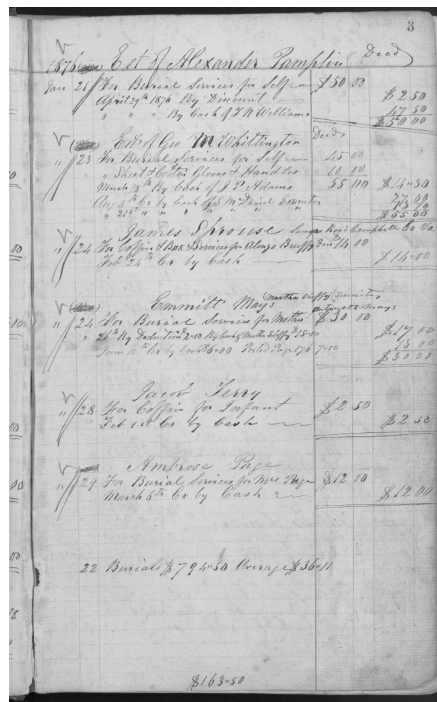 3
1876 Est of Alexander Pamplin Deed
Jan 21 For Burial Services for Self $50 00
April 29th 1876 By Discount $2 50
" " " By Cash of J N Williams 47 50
$50 00
Est of Geo M Whittington Deed
" 23 For Burial Services for Self 45 00
" Sheet & Cotton Gloves & Handles 10 00
March 8th By Cash of J D Adams 55 00
$55 00
James Sprouse Campbell Co Va
" 24 For Coffin & Box & Services for Alonzo 14 00
Feb 24th Cr by Cash $14 00
Emmitt Mays
" 24 For Burial Services for Mother $30 00
26th By Deduction 2 00 By Cash of 15 00 $17 00
Cr by Cash 6 00 Posted Page 176 7 00 13 00
$30 00
Jacob Terry
" 28 For Coffin for Infant $2 50
Feb 1st Cr by Cash $2 50
Ambrose Page
" 29 For Burial Services for Mrs Page $12 00
March 6th Cr by Cash $12 00
22 Burials $794.50 Average $36.11
$163.50